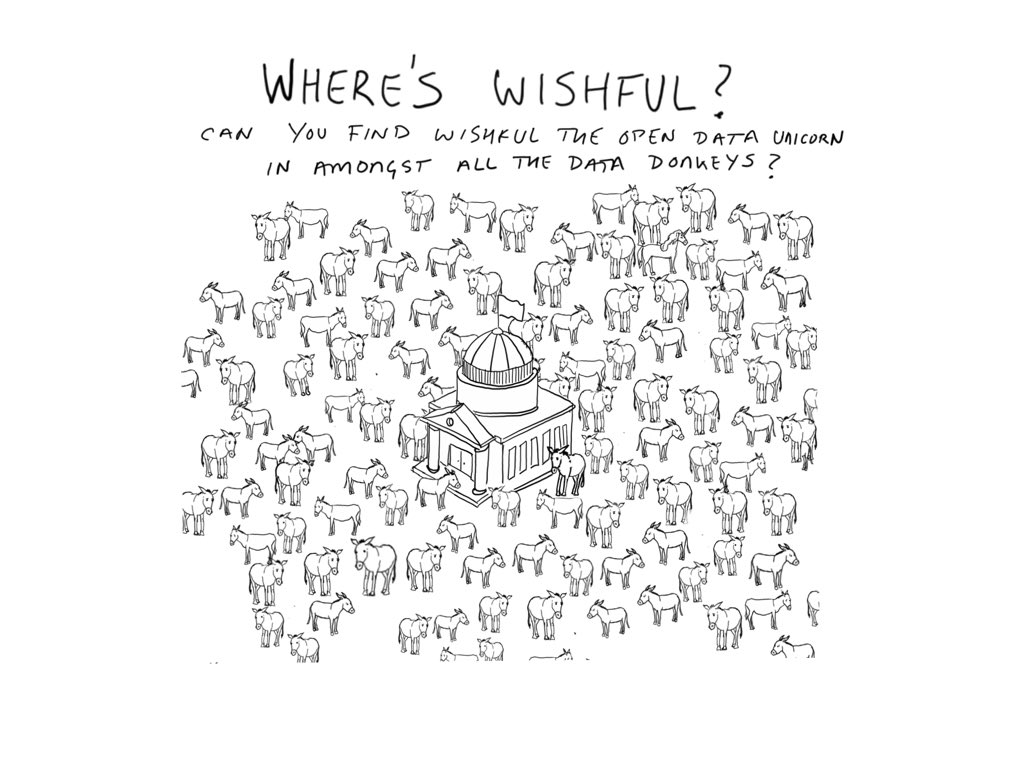 WHERE'S WISHFUL?
CAN YOU FIND WISHFUL THE OPEN DATA UNICORN
IN AMONGST ALL THE DATA DONKEYS?